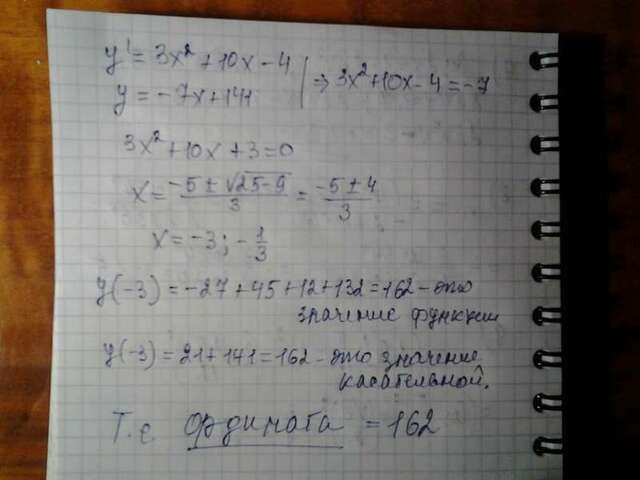 y' = 3x² + 10x - 4
y = -7x + 141 | ⇒ 3x² + 10x - 4 = -7
3x² + 10x + 3 = 0
x = (-5 ± √25-9)/3 = (-5 ± 4)/3
x = -3; -1/3
y(-3) = -27 + 45 + 12 + 132 = 162 - это
значение функции
y(-3) = 21 + 141 = 162 - это значение
касательной.
Т.е. ордината = 162